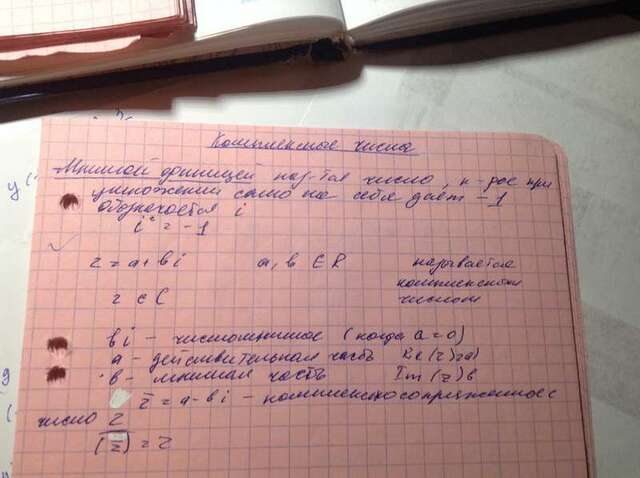 Комплексные числа
Мнимой единицей наз-тся число, к-рое при
умножении само на себя даёт -1
обозначается i
i² = -1
z = a + bi a, b ∈ R называется
комплексным
z ∈ C числом
bi - число мнимое (когда a=0)
a - действительная часть Re(z)=a)
b - мнимая часть Im(z) b
z̅ = a - bi - комплексно сопряженное с
число z
(z̅)̅ = z